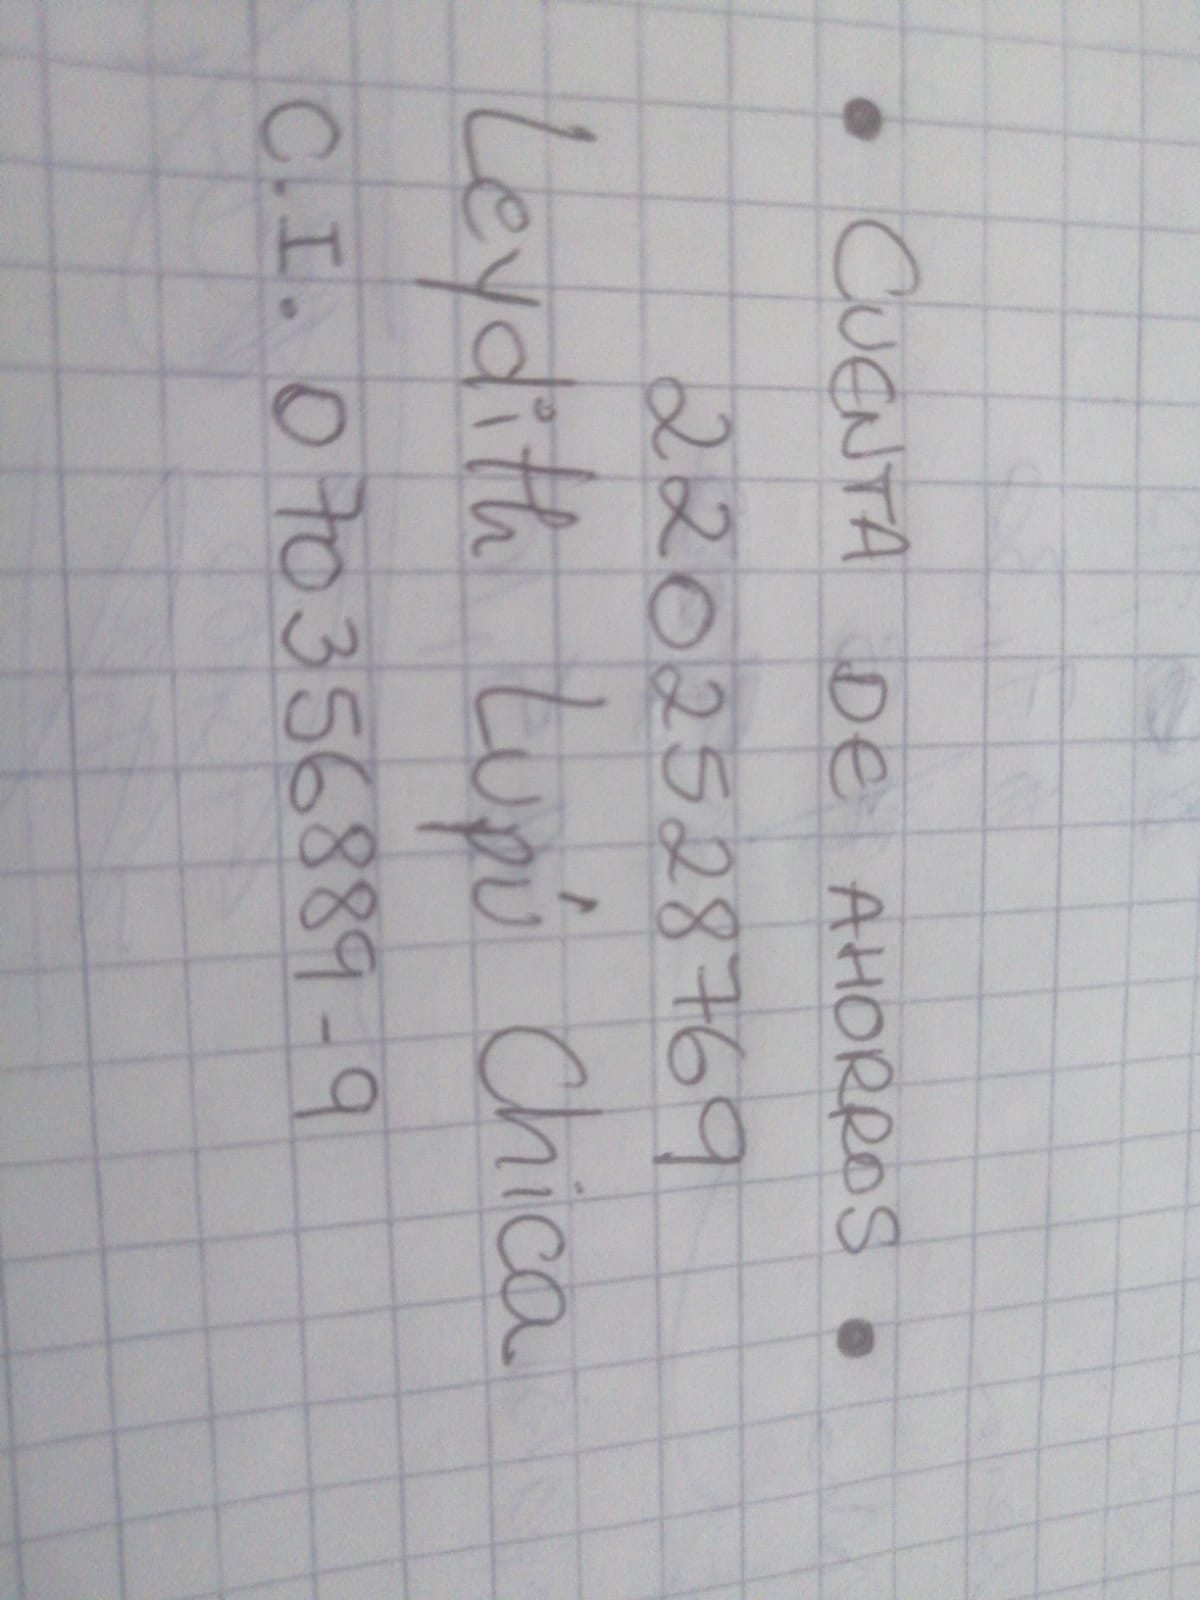 • CUENTA DE AHORROS •
2202528769
Leydith Lupú Chica
C.I. 070356889-9